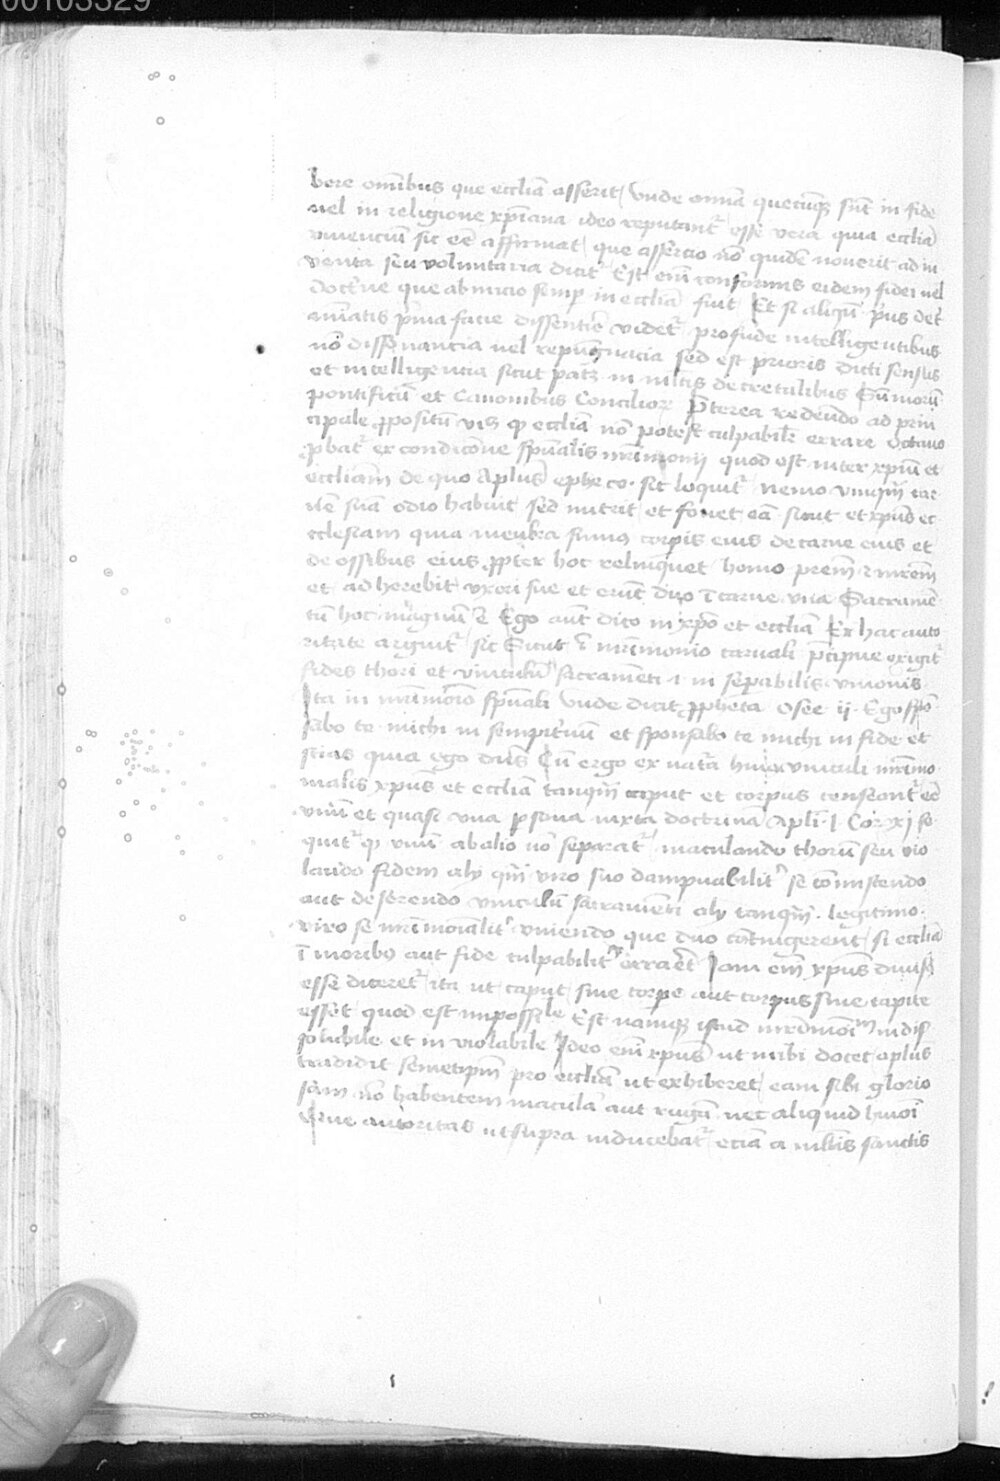 00103329
bere om̄ibus que eccliā asserit / Vnde omīa quecūq̨ sūt in fide
uel in religione xp̄iana ideo reputant᷑ esse vera quia ecclia
viuenciū sic eē affirmat / que assercio nō quidē nouerit ad in
uenta seu voluntaria dicit᷑ Est enī conformis eidem fidei uel
doct'ne que ab inicio semp in ecclia fuit Et si aliqn̄ p'us det'
minatis p'ma facie dissentire videt᷑ profūde intelligentibus
nō dissonancia uel repugnācia sed est prioris dicti sensus
et intelligencia sicut patz in ml̄tis decretalibus Sūmorū
pontificū et Canonibus Concilior̨ P̄terea redeūdo ad prin
cipale p̱positū vis qđ ecclia nō potest culpabilr̄ errare octauo
p̱bat᷑ ex condicōne sp̄ualis mr̄imonij quod est inter xpm̄ et
eccliam de quo Aplus ephe co. sic loquit᷑ nemo vnqm̄ car
nē suā odio habuit sed nutrit et fouet eā sicut et xpūs ec
clesiam quia membra sumus corpis eius de carne eius et
de ossibus eius p̱pter hoc relinquet homo prem̄ ⁊ mr̄em
et adherebit vxori sue et erūt duo ī carne vna Sacramē
tū hoc magnum ē Ego aūt dico in xpō et ecclīā Ex hac aucto
ritate arguit᷑ sic Sicut ī mr̄imonio carnali p̄cipue exigit᷑
fides thori et vinculū sacramenti ⁊ inseparabilis vnionis
Ita in mr̄imōio sp̄uali vnde dicit p̱pheta Osee ij. Ego spō
sabo te michi in sempit'nū et sponsabo te michi in fide et
scias quia ego dn̄s Cū ergo ex nat'a huius vinculi mr̄imo
nialis xpūs et ecclīā tanqm̄ caput et corpus censeant᷑ eē
vnū et quasi vna p̱sona iuxta doctrinā Apli I Cor xj se
quit᷑ qđ vnū ab alio nō separat᷑ maculando thorū seu vio
lando fidem alij qm̄ viro suo dampnabilit' se cōmiscendo
aut deserendo vinculū sacramēti alij tanqm̄ legitimo
viro se mr̄imonialit' vniendo que duo cōtingerent si ecclīā
ī moribȝ aut fide culpabilit' erraret Iam enī xpūs diuisꝯ
esse diceret᷑ ita ut caput sine corpe aut corpus sine capite
esset quod est impossibile Est namq̨ istud mr̄imoīm indis
solubile et inviolabile Ideo enī xpūs ut inibi docet aplus
tradidit semetipm̄ pro ecclīā ut exhiberet eam sibi glorio
sam nō habentem maculā aut rugā nec aliquid hmoī
Que auctoritas ut supra inducebat᷑ eciā a ml̄tis sanctis